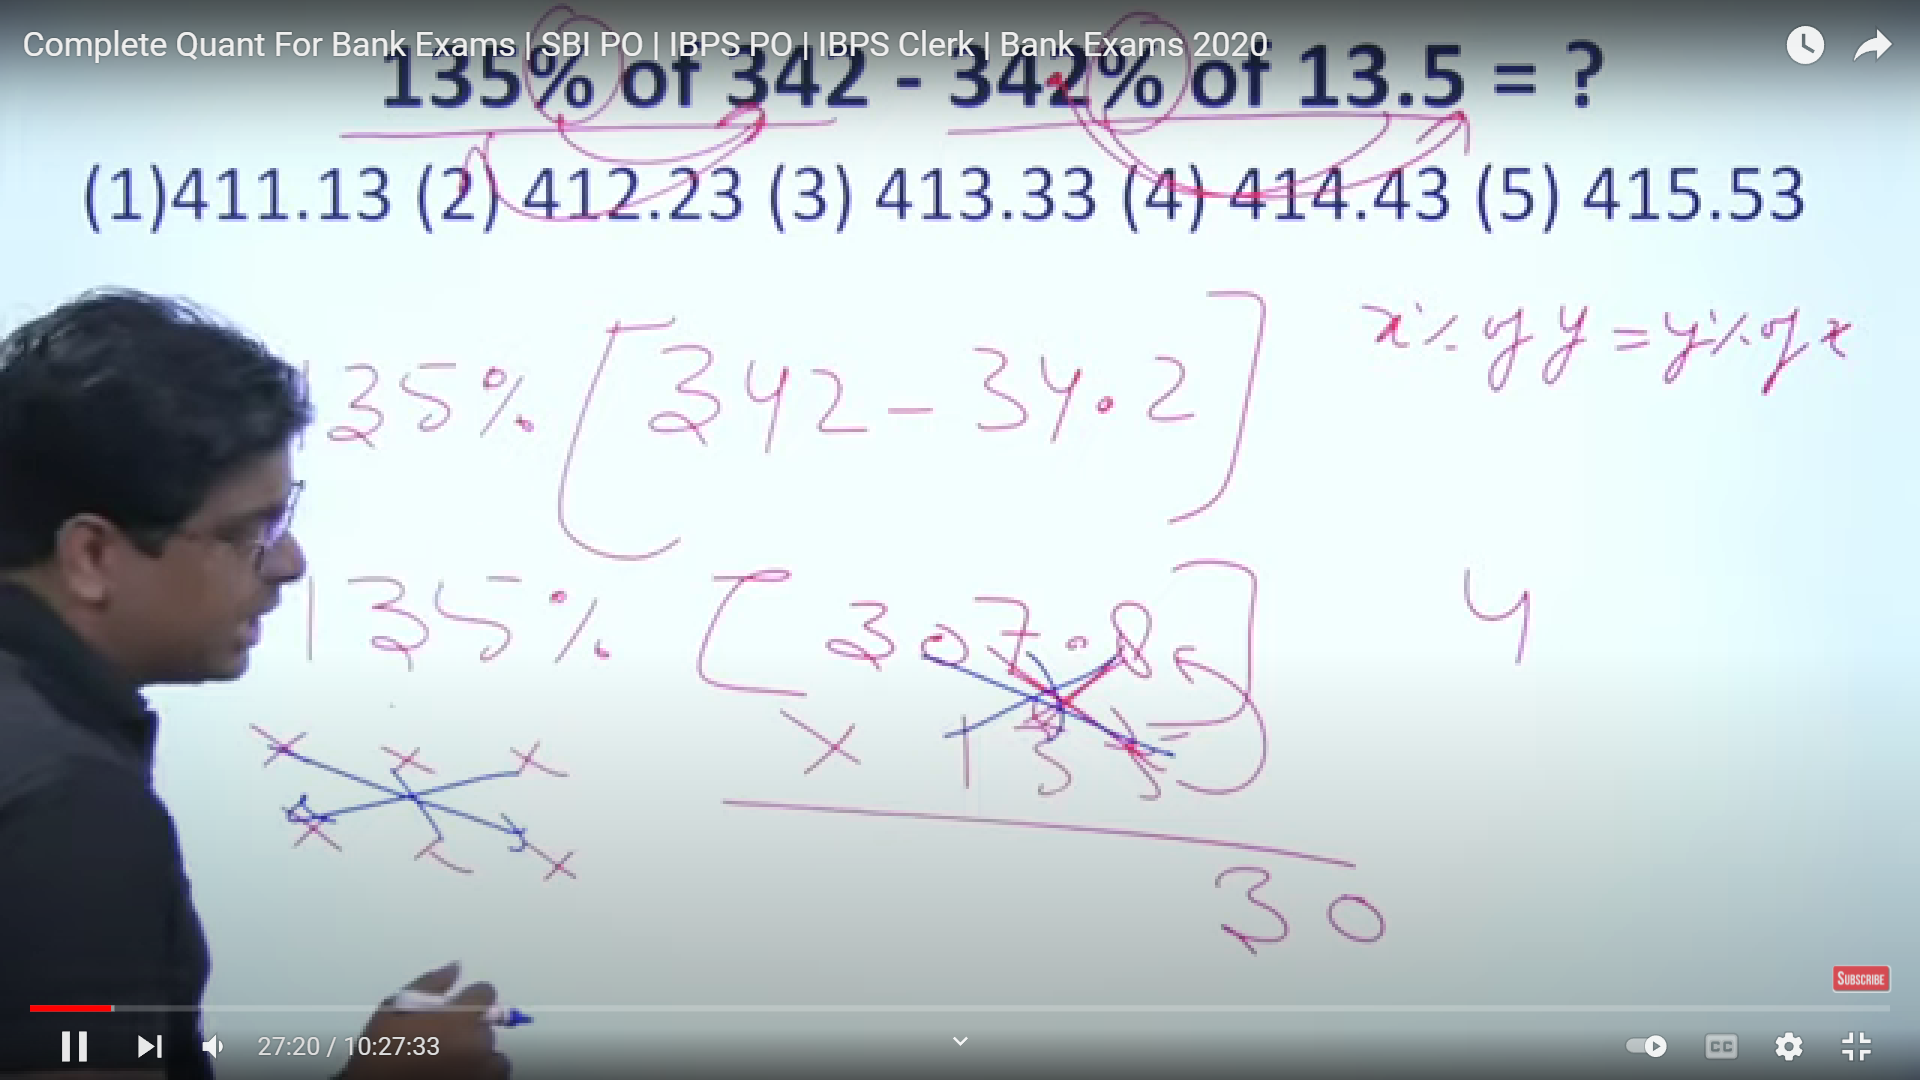 Complete Quant For Bank Exams | SBI PO | IBPS PO | IBPS Clerk | Bank Exams 2020
135% of 342 - 342% of 13.5 = ?
(1)411.13 (2) 412.23 (3) 413.33 (4) 414.43 (5) 415.53
x% of y = y% of x
135% [342 - 34.2]
135% [307.8]
4
× 135
30
SUBSCRIBE
27:20 / 10:27:33
CC